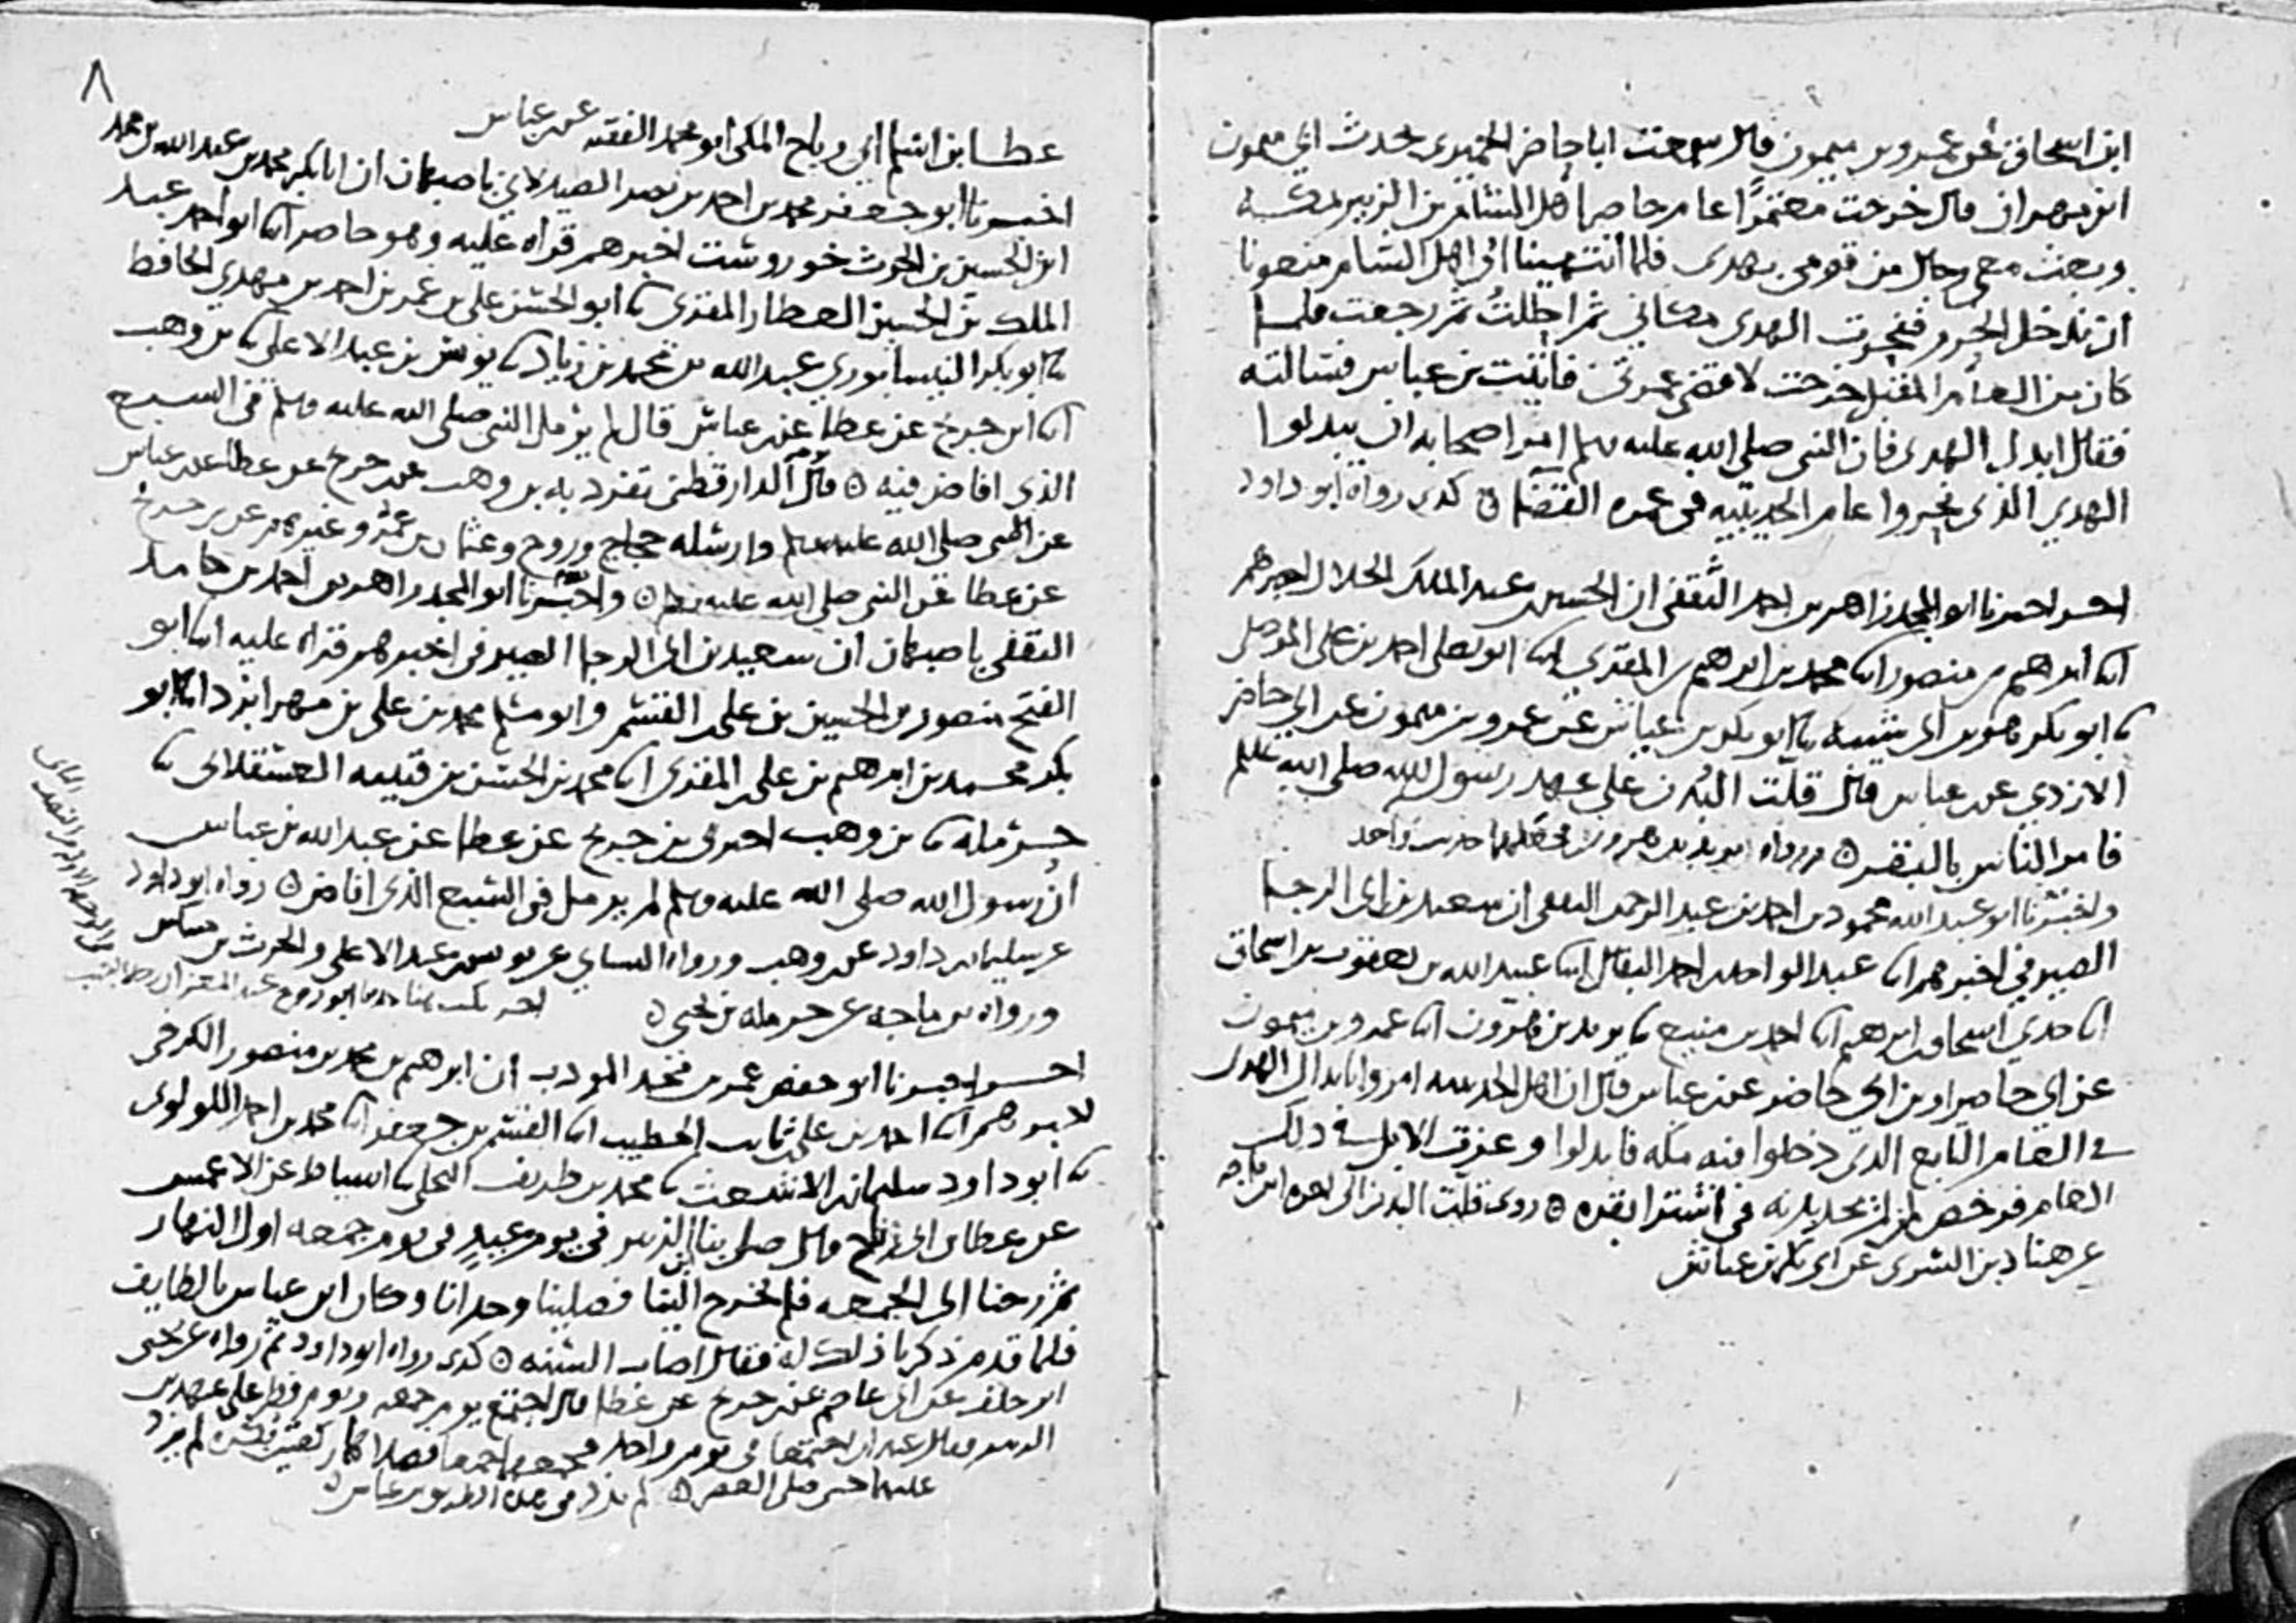 ابن اسحاق عن عمرو بن ميمون قال سمعت ابا حاضر الحميري يحدث ابي ميمون
ابن مهران قال خرجت معتمرا عام حاصر اهل الشام بن الزبير بمكة
وبعث معي رجال من قومي بهدي فلما انتهينا الى اهل الشام منعونا
ان ندخل الحرم فنحرت الهدي مكاني ثم احللت ثم رجعت فلما
كان من العام المقبل خرجت لاقضي عمرتي فاتيت بن عباس فسالته
فقال ابدل الهدي فان النبي صلى الله عليه وسلم امر اصحابه ان يبدلوا
الهدي الذي نحروا عام الحديبيه في عمره القضا ه كذى رواه ابو داود
اخر اخبرنا ابو المجد زاهر بن احمد الثقفي ان الحسين بن عبد الملك الخلال اخبرهم
انا ابرهيم بن منصور انا محمد بن ابرهيم بن المقري انا ابو يعلى احمد بن علي الموصلي
نا ابو بكر هو بن ابي شيبه نا ابو بكر بن عياش عن عمرو بن ميمون عن ابي حاضر
الازدي عن بن عباس قال قلت البدن على عهد رسول الله صلى الله عليه وسلم
فامر الناس بالبقر ه ورواه يزيد بن هرون فجعلهما حديث واحد
واخبرنا ابو عبد الله محمود بن احمد بن عبد الرحمن الثقفي ان سعيد بن ابي الرجا
الصيرفي اخبرهم انا عبد الواحد بن احمد البقال انا عبيد الله بن يعقوب بن اسحاق
انا جدي اسحاق بن ابرهيم انا احمد بن منيع نا يزيد بن هرون انا عمرو بن ميمون
عن ابي حاضر او بن ابي حاضر عن بن عباس قال ان اهل الحديبيه امروا بابدال الهدي
في العام التابع الذي دخلوا فيه مكه فابدلوا وعزت الابل في ذلك
العام فرخص لمن لم يجد بدنه في اشترا بقره ه روى قلت البدن الى اخره ابن ماجه
عن هناد بن السري عن ابي بكر بن عياش
٨
عطا بن اسلم ابي رباح المكي ابو محمد الفقيه عن بن عباس
اخبرنا ابو جعفر محمد بن احمد بن نصر الصيدلاني باصبهان ان ابا بكر محمد بن عبد الله بن محمد
ابن الحسين بن الحرث خوروشت اخبرهم قراه عليه وهو حاضر انا ابو احمد عبد
الملك بن الحسين العطار المقري نا ابو الحسن علي بن عمر بن احمد بن مهدي الحافظ
نا ابو بكر النيسابوري عبد الله بن محمد بن زياد نا يونس بن عبد الاعلى نا بن وهب
انا ابن جريج عن عطا عن بن عباس قال لم يرمل النبي صلى الله عليه وسلم في السبع
الذي افاض فيه ه قال الدارقطني تفرد به بن وهب عن بن جريج عن عطا عن بن عباس
عن النبي صلى الله عليه وسلم وارسله حجاج وروح وعثمان بن عمر وغيرهم عن بن جريج
عن عطا عن النبي صلى الله عليه وسلم ه واخبرنا ابو المجد زاهر بن احمد بن حامد
الثقفي باصبهان ان سعيد بن ابي الرجا الصيرفي اخبرهم قراه عليه انا ابو
الفتح منصور بن الحسين بن علي بن القسم وابو مسلم محمد بن علي بن مهرابزد انا ابو
بكر محمد بن ابرهيم بن علي المقري انا محمد بن الحسن بن قتيبه العسقلاني نا
حرمله نا بن وهب اخبرني بن جريج عن عطا عن عبد الله بن عباس
ان رسول الله صلى الله عليه وسلم لم يرمل في السبع الذي افاض ه رواه ابو داود
عن سليمان بن داود عن بن وهب ورواه النساي عن يونس بن عبد الاعلى والحرث بن مسكين
ورواه بن ماجه عن حرمله بن يحيى ه
اخر اخبرنا ابو حفص عمر بن محمد المودب ان ابرهيم بن محمد بن منصور الكرخي
اخبرهم انا احمد بن علي بن ثابت الخطيب انا القسم بن جعفر انا محمد بن احمد اللولوي
نا ابو داود سليمان بن الاشعث نا محمد بن طريف البجلي نا اسباط عن الاعمش
عن عطا بن ابي رباح قال صلى بنا ابن الزبير في يوم عيد في يوم جمعه اول النهار
ثم رحنا الى الجمعه فلم يخرج الينا فصلينا وحدانا وكان ابن عباس بالطايف
فلما قدم ذكرنا ذلك له فقال اصاب السنه ه كذى رواه ابو داود ثم رواه عن يحيى
ابن خلف عن ابي عاصم عن بن جريج عن عطا قال اجتمع يوم جمعه ويوم فطر على عهد بن
الزبير فقال عيدان اجتمعا في يوم واحد فجمعهما جميعا فصلاهما ركعتين بكره لم يزد
عليهما حتى صلى العصر ه لم يذكر في هذه الطريق بن عباس ه